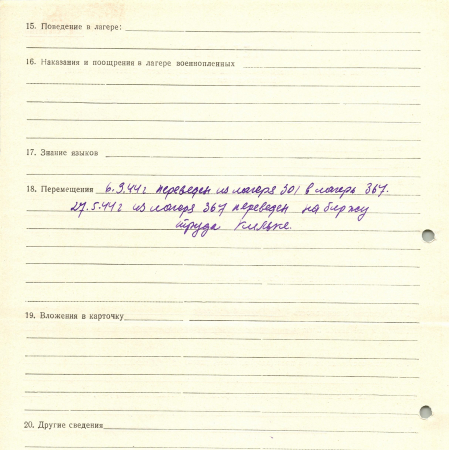 15. Поведение в лагере:
16. Наказания и поощрения в лагере военнопленных
17. Знание языков
18. Перемещения 6.9.44г переведен из лагеря 301 в лагерь 367.
27.5.44г из лагеря 367 переведен на биржу
труда
19. Вложения в карточку
20. Другие сведения